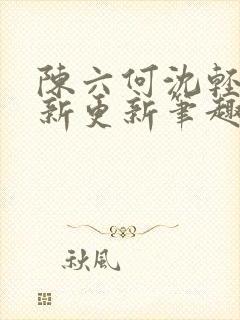 陳六何沈輕
新更新筆趣
秋風